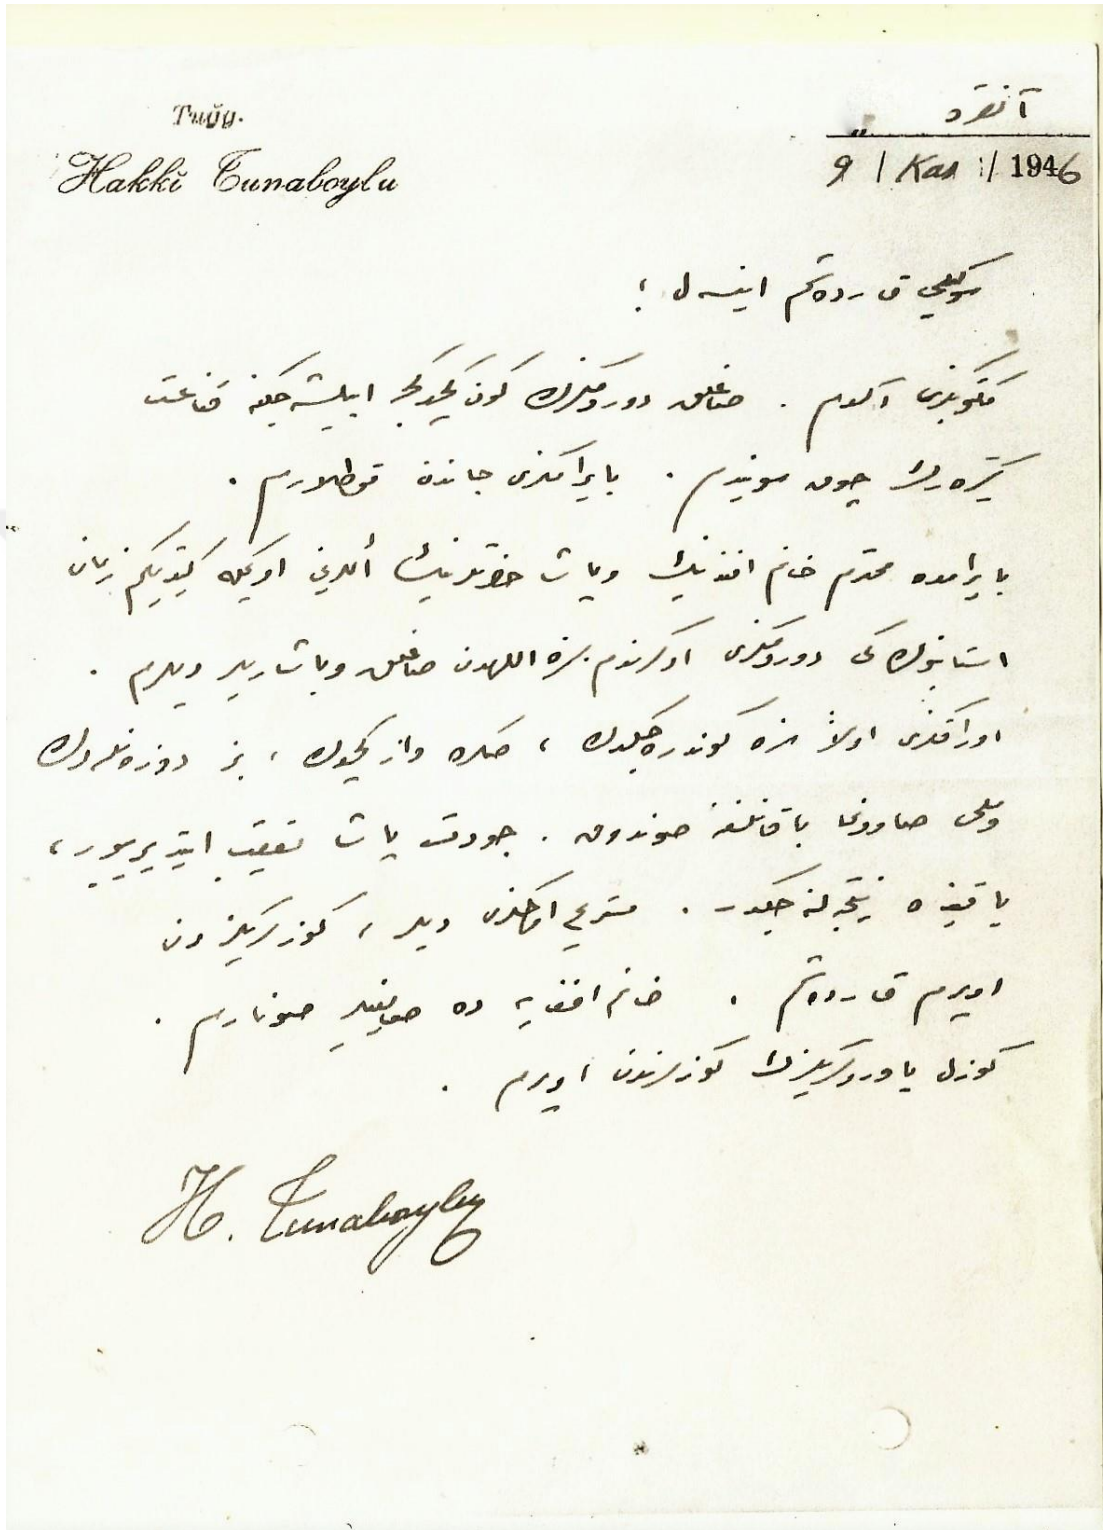 Tuğg.
Hakkı Tunaboylu
آنقره
9 / Kas / 1946
سوكيلى قارده شم اينه ل ؛
مكتوبكزى آلدم . صاغلق دورومكزك كون كچدكجه اييلشه جكنه قناعت
كتيره رك چوق سويندم . بايرامكزى جاندن قوطلارم .
بايرامده محترم خانم افندينك وپاشا حضرتلرينك اللرينى اوپمكه كيتديكم زمان
استانبولده كى دورومكزى اوكرندم سزه اللهدن صاغلق وباشاريلر ديلرم .
اوراقكزى اولاً سزه كوندره جكدك ، صكره واز كچدك ، بز دوزه نله دك
وملى صاوونما باقانلغنه صوندوق . جودت پاشا تعقيب ايتديرييور ،
ياقينده نتيجه لنه جكدر . مسترح اولمكزى ديلر ، كوزلريكزدن
اوپرم قارده شم . خانم افندى يه ده صايغيلر صونارم .
كوزل ياورولريكزك كوزلرندن اوپرم .
H. Tunaboylu